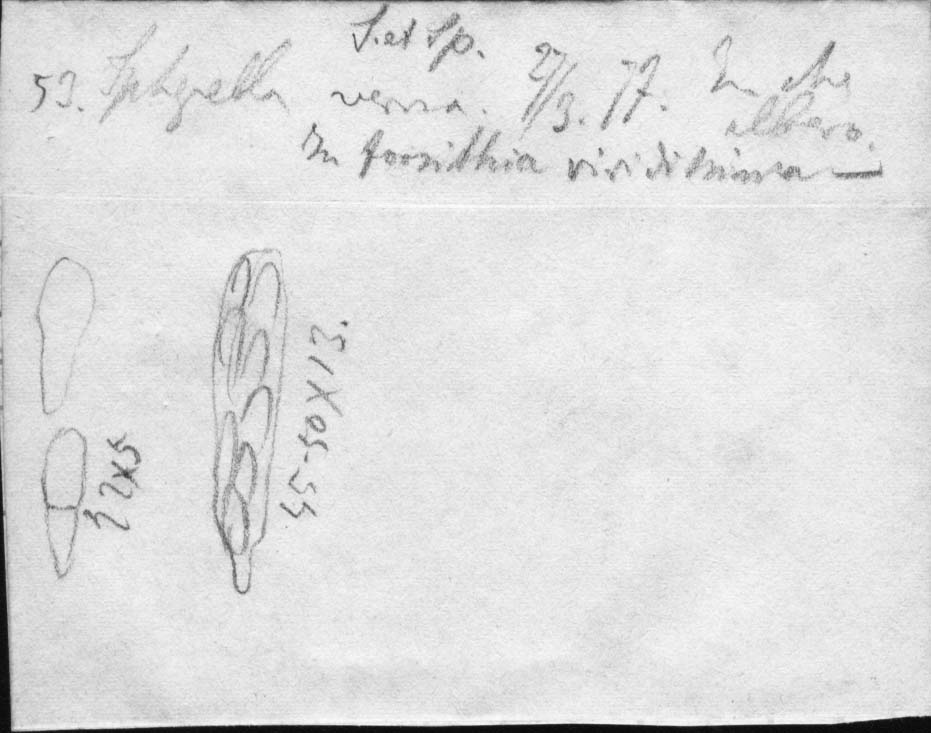 S. et Sp.
53. Sphærella verna. 27/3. 77. In
albero.
In forsithia viridissima —
22x5
45-50X13.